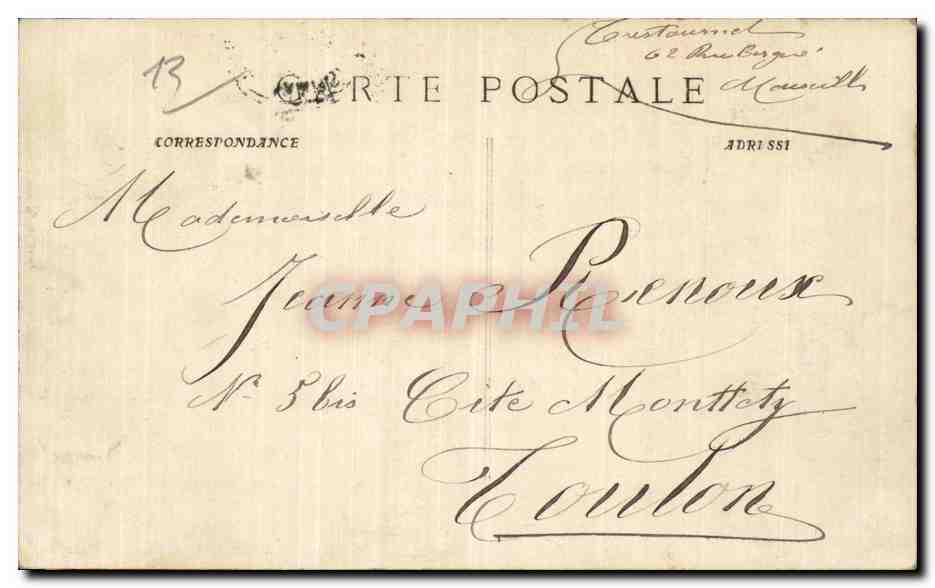 Trestournel
62 Rue Bergeé
Marseille
13
CARTE POSTALE
CORRESPONDANCE
ADRESSE
Mademoiselle
Jeanne Renoux
CPAPHIL
N° 5 bis Cité Montéty
Toulon